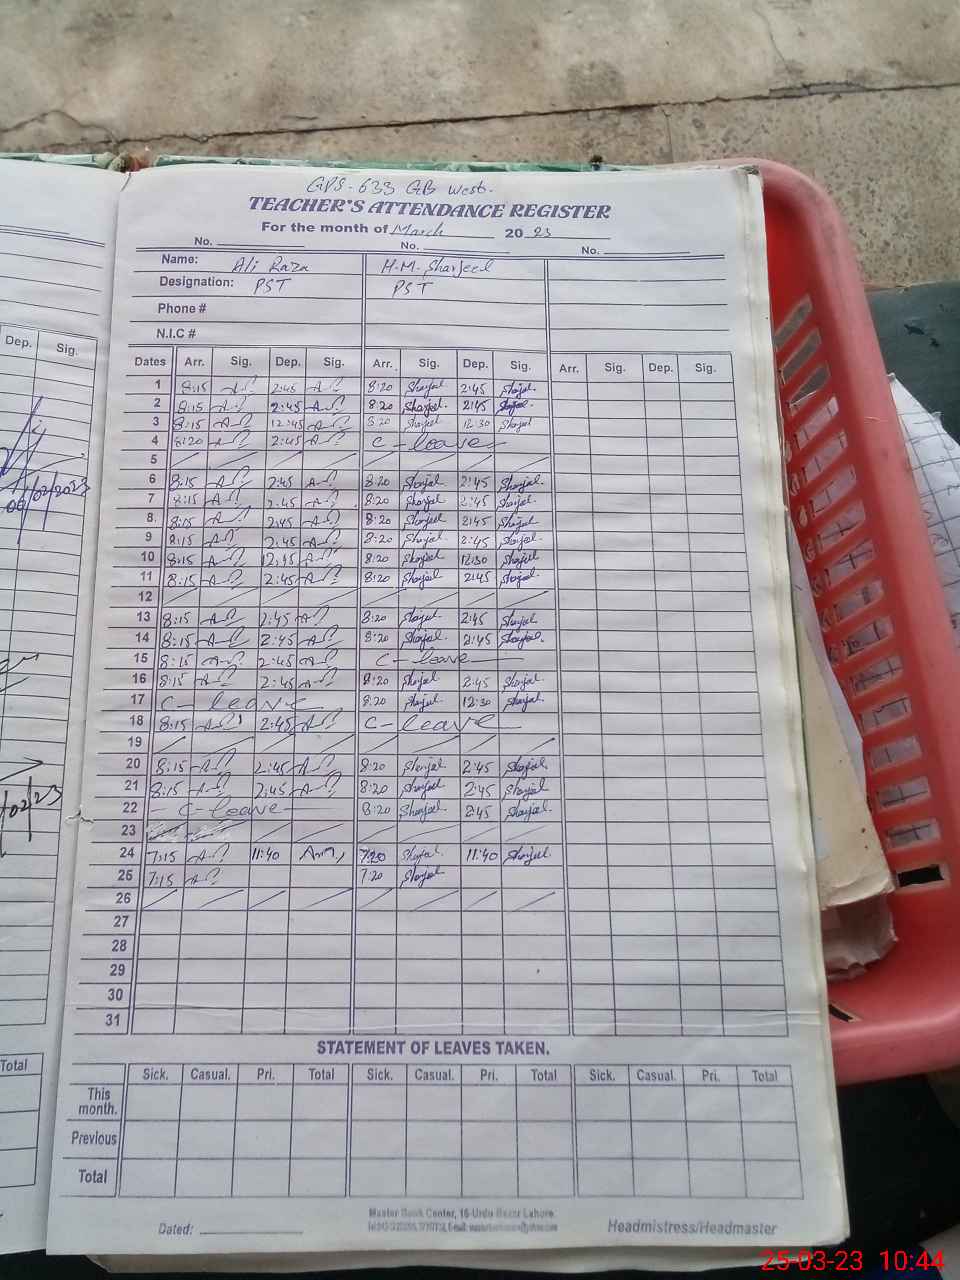 GPS-633 GB West.
TEACHER'S ATTENDANCE REGISTER
For the month of March 2023
No. No. No.
Name: Ali Raza H.M. Sharjeel
Designation: PST PST
Phone #
N.I.C #
Dep. Sig.
Dates Arr. Sig. Dep. Sig. Arr. Sig. Dep. Sig. Arr. Sig. Dep. Sig.
1 8:15 2:45 8:20 Sharjeel 2:45 Sharjeel
2 8:15 2:45 8:20 Sharjeel 2:45 Sharjeel
3 8:15 12:45 8:20 Sharjeel 12:30 Sharjeel
4 8:20 2:45 C-leave
5
6 8:15 2:45 8:20 Sharjeel 2:45 Sharjeel
7 8:15 2:45 8:20 Sharjeel 2:45 Sharjeel
8. 8:15 2:45 8:20 Sharjeel 2:45 Sharjeel
9 8:15 2:45 8:20 Sharjeel 2:45 Sharjeel
10 8:15 12:45 8:20 Sharjeel 12:30 Sharjeel
11 8:15 2:45 8:20 Sharjeel 2:45 Sharjeel
12
13 8:15 2:45 8:20 Sharjeel 2:45 Sharjeel
14 8:15 2:45 8:20 Sharjeel 2:45 Sharjeel
15 8:15 2:45 C-leave
16 8:15 2:45 8:20 Sharjeel 2:45 Sharjeel
17 C-leave 8:20 Sharjeel 12:30 Sharjeel
18 8:15 2:45 C-leave
19
20 8:15 2:45 8:20 Sharjeel 2:45 Sharjeel
21 8:15 2:45 8:20 Sharjeel 2:45 Sharjeel
22 C-leave 8:20 Sharjeel 2:45 Sharjeel
23
24 7:15 11:40 7:20 Sharjeel 11:40 Sharjeel
25 7:15 7:20 Sharjeel
26
27
28
29
30
31
STATEMENT OF LEAVES TAKEN.
Total
Sick. Casual. Pri. Total Sick. Casual. Pri. Total Sick. Casual. Pri. Total
This month.
Previous
Total
Master Book Center, 16-Urdu Bazar Lahore.
Dated: Headmistress/Headmaster
25-03-23 10:44